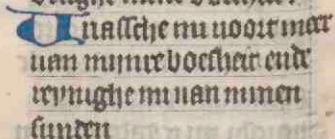 Unassche mi uoort meer
uan mijnre boesheit ende
reynighe mi uan minen
sunden